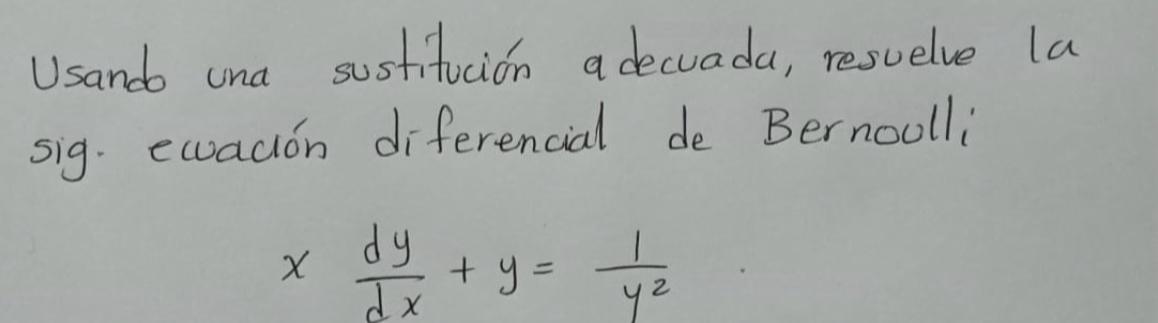 Usando una sustitución adecuada, resuelve la
sig. ecuación diferencial de Bernoulli
x dy/dx + y = 1/y²